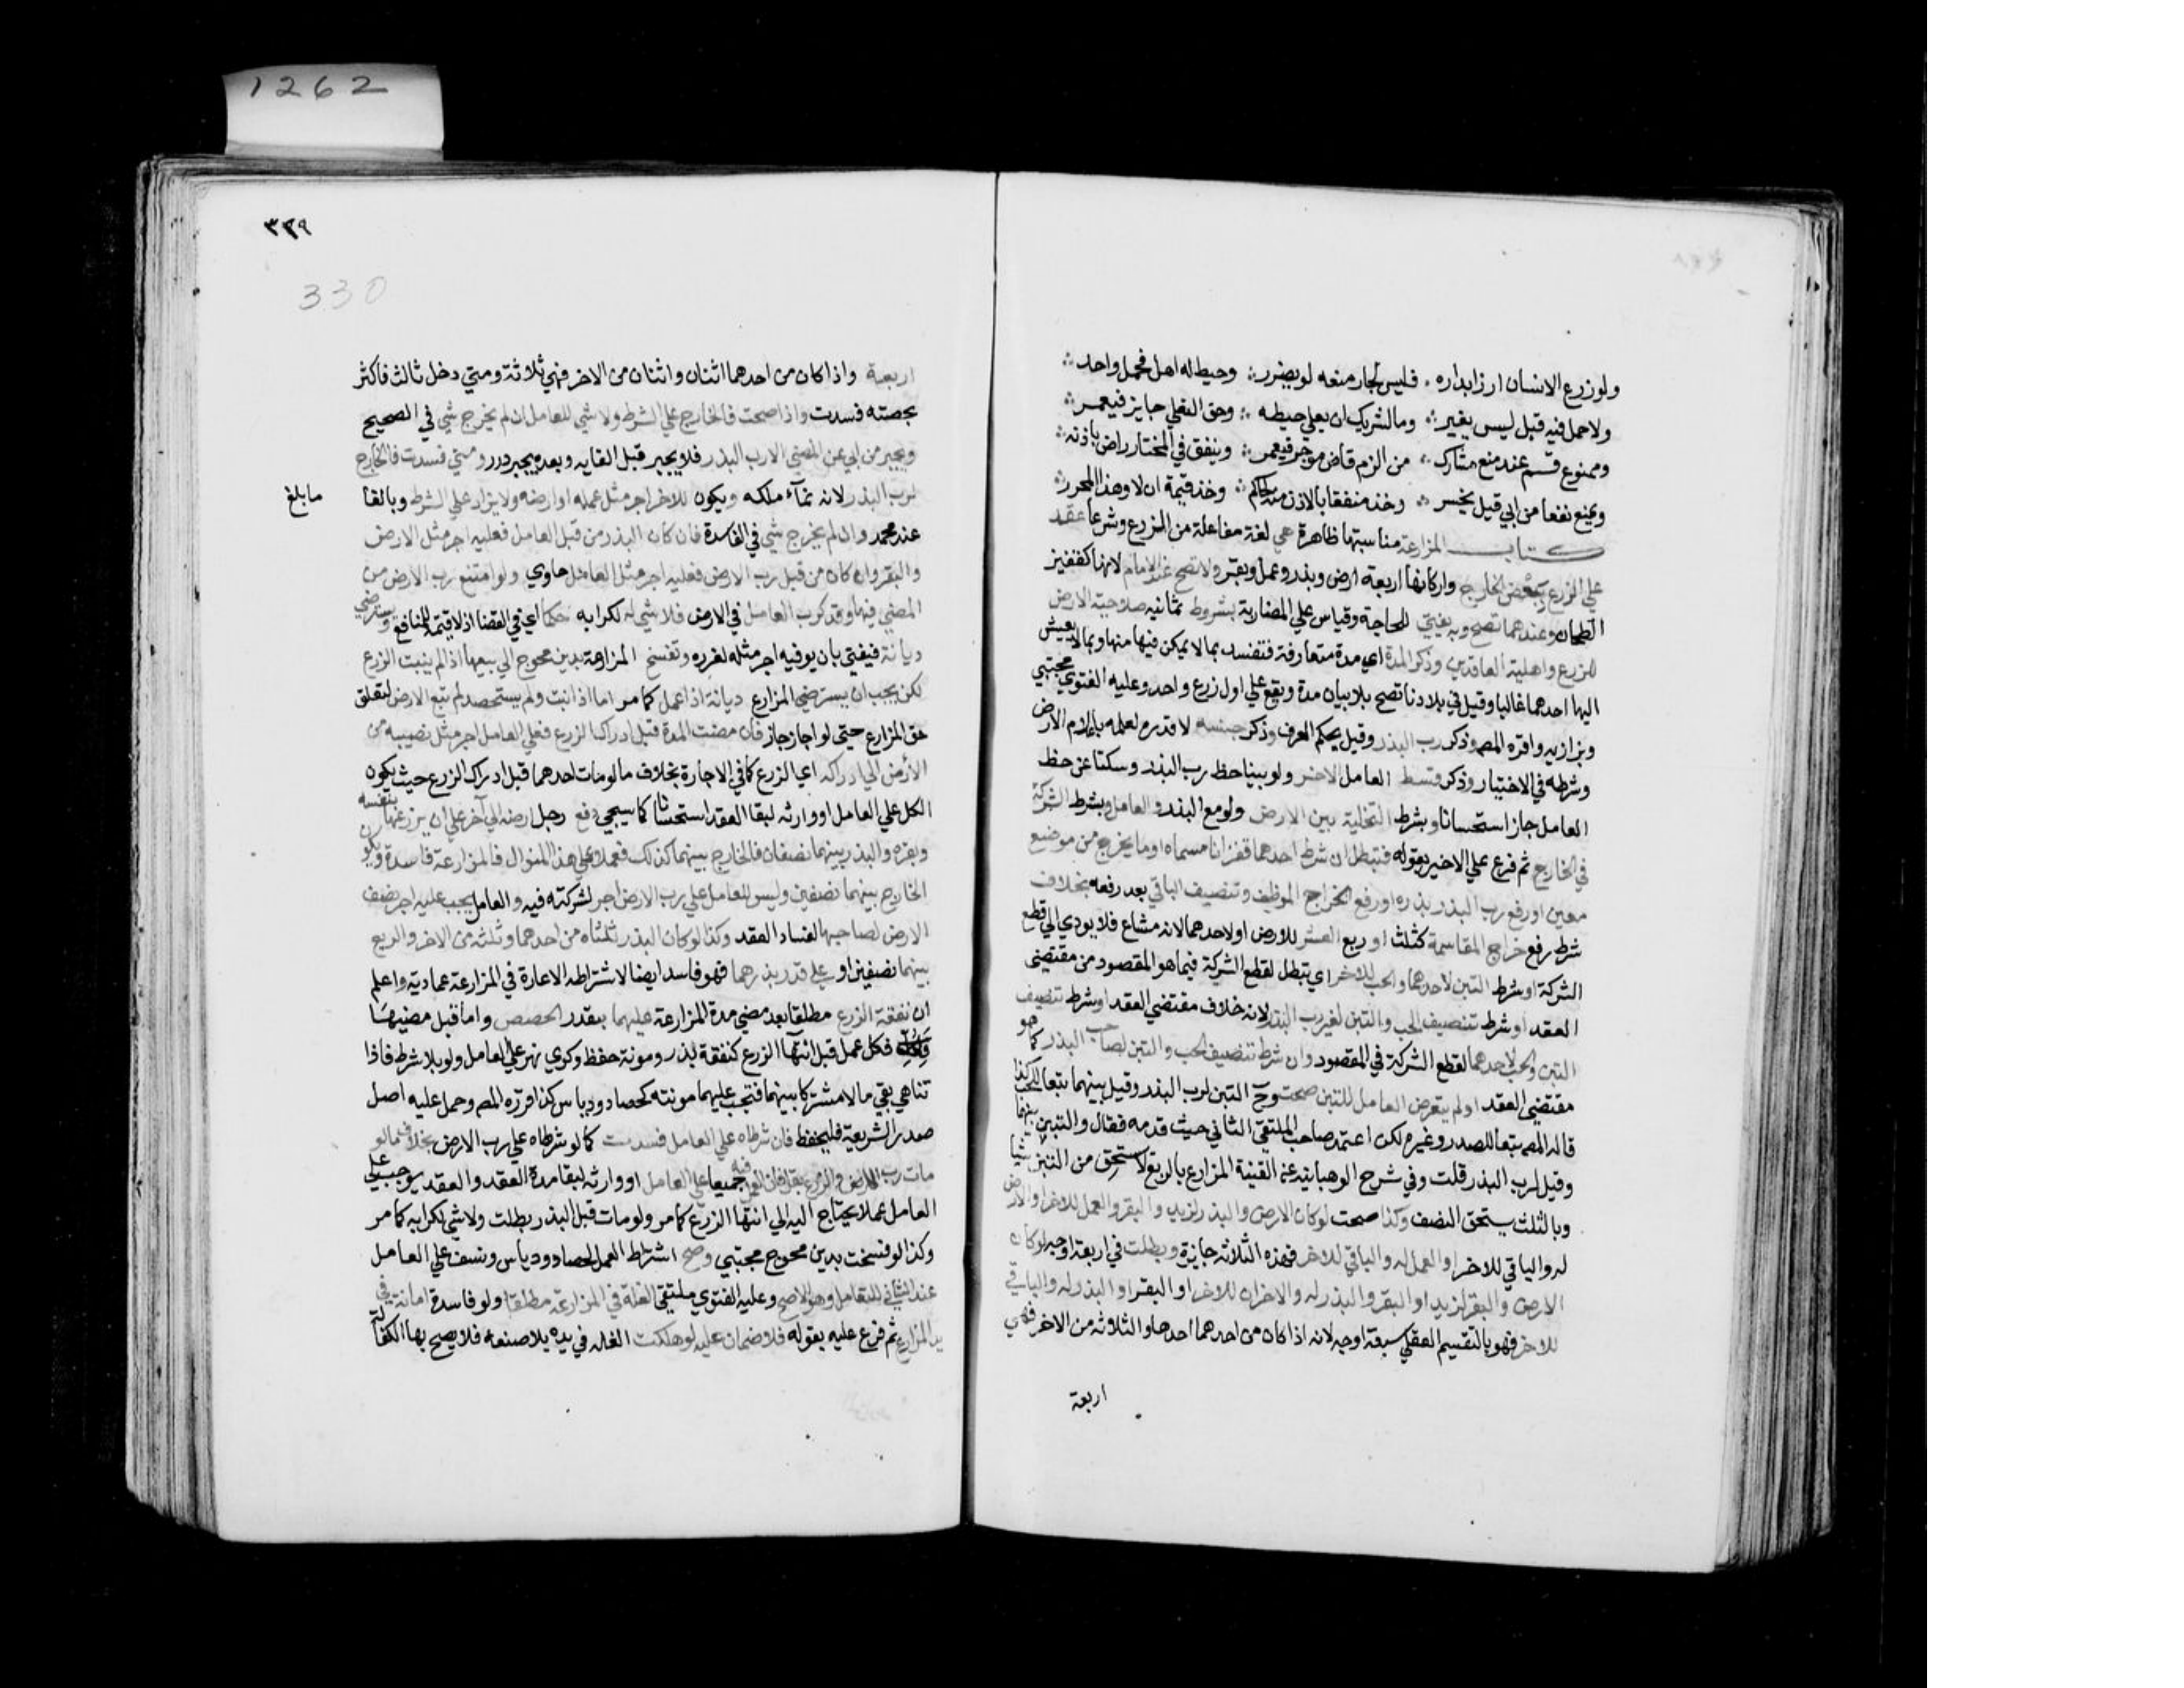 1262
ولو زرع الانسان ارزا بداره ۰ فليس لجار منعه لو يضرر ∴ وحيط له اهل فحمل واحد ∴
ولا حمل فيه قبل ليس يغير ∴ وما لشريك ان يعلي حيطه ∴ وحق التعلي جايز فيعمر ∴
وممنوع قسم عند منع مشارك ∴ من الزم قاض موجر فيعمر ∴ وينفق في المختار راض باذنه ∴
ويمنع نفعا من ابي قيل يخسر ∴ وخذ منفقا بالاذن منه لحاكم ∴ وخذ قيمة ان لا وهذا المحرر ∴
كتاب المزارعة مناسبتها ظاهرة هي لغة مفاعلة من الزرع وشرعا عقد
علي الزرع ببعض الخارج واركانها اربعة ارض وبذر وعمل وبقر ولا تصح عند الامام لانها كقفيز
الطحان وعندهما تصح وبه يفتي للحاجة وقياس علي المضاربة بشروط ثمانيه صلاحية الارض
للزرع واهلية العاقدين وذكر المدة اي مدة متعارفة فتفسد بما لا يمكن فيها منها وبما لا يعيش
اليها احدهما غالبا وقيل في بلادنا تصح بلا بيان مدة ويقع علي اول زرع واحد وعليه الفتوي مجتبي
وبزازيه واقره المص وذكر رب البذر وقيل يحكم العرف وذكر جنسه لا قدره لعلمه باعلام الارض
وشرطه في الاختيار وذكر قسط العامل الاخر ولو بينا حظ رب البذر وسكتا عن حظ
العامل جاز استحسانا وبشرط التخلية بين الارض ولو مع البذر والعامل وبشرط الشركة
في الخارج ثم فرع علي الاخير بقوله فتبطل ان شرط احدهما قفزانا مسماه او ما يخرج من موضع
معين او رفع رب البذر بذره او رفع الخراج الموظف وتنصيف الباقي بعد رفعه بخلاف
شرط رفع خراج المقاسمة كثلث او ربع العشر للارض او لاحدهما لانه مشاع فلا يودي الي قطع
الشركة او شرط التبن لاحدهما والحب للاخر اي تبطل لقطع الشركة فيما هو المقصود من مقتضي
العقد او شرط تنصيف الحب والتبن لغير رب البذر لانه خلاف مقتضي العقد او شرط تنصيف
التبن والحب لاحدهما لقطع الشركة في المقصود وان شرط تنصيف الحب والتبن لصاحب البذر كما هو
مقتضي العقد او لم يتعرض العامل للتبن صحت وح التبن لرب البذر وقيل بينهما تبعا للحب كذا
قاله المص تبعا للصدر وغيره لكن اعتمد صاحب الملتقي الثاني حيث قدمه فقال والتبن بينهما
وقيل لرب البذر قلت وفي شرح الوهبانيه عن القنية المزارع بالربع لا يستحق من التبن شيا
وبالثلث يستحق النصف وكذا صحت لو كان الارض والبذر لزيد والبقر والعمل للاخر او الارض
له والباقي للاخر او العمل له والباقي للاخر فهذه الثلاثه جايزة وبطلت في اربعة اوجه لو كان
الارض والبقر لزيد او البقر والبذر له والاخران للاخر او البقر او البذر له والباقي
للاخر فهو بالتقسيم العقلي سبعة اوجه لانه اذا كان من احدهما احدها والثلاثه من الاخر فهي
اربعة
٣٢٩
330
اربعة واذا كان من احدهما اثنان واثنان من الاخر فهي ثلاثة ومتي دخل ثالث فاكثر
بحصته فسدت واذا صحت فالخارج علي الشرط ولا شي للعامل ان لم يخرج شي في الصحيح
ويجبر من ابي عن المضي الا رب البذر فلا يجبر قبل القايه وبعده يجبر درر ومتي فسدت فالخارج
لرب البذر لانه نماء ملكه ويكون للاخر اجر مثل عمله او ارضه ولا يزاد علي الشرط وبالغا
ما بلغ
عند محمد وان لم يخرج شي في الفاسدة فان كان البذر من قبل العامل فعليه اجر مثل الارض
والبقر وان كان من قبل رب الارض فعليه اجر مثل العامل حاوي ولو امتنع رب الارض من
المضي فيها وقد كرب العامل في الارض فلا شي له لكرابه حكما اي في القضا اذ لا قيمة للمنافع ويسترضي
ديانة فيفتي بان يوفيه اجر مثله لغرره وتفسخ المزارعة بدين محوج الي بيعها اذا لم ينبت الزرع
لكن يجب ان يسترضي المزارع ديانة اذا عمل كما مر اما اذا نبت ولم يستحصد لم تبع الارض لتعلق
حق المزارع حتي لو اجاز جاز فان مضت المدة قبل ادراك الزرع فعلي العامل اجر مثل نصيبه من
الارض الي ادراكه اي الزرع كما في الاجارة بخلاف ما لو مات احدهما قبل ادراك الزرع حيث يكون
الكل علي العامل او وارثه لبقا العقد استحسانا كما سيجي دفع رجل ارضه الي آخر علي ان يزرعها بنفسه
وبقره والبذر بينهما نصفان فالخارج بينهما كذلك فعملا علي هذا المنوال فالمزارعة فاسدة ويكون
الخارج بينهما نصفين وليس للعامل علي رب الارض اجر لشركته فيه والعامل يجب عليه اجر نصف
الارض لصاحبها لفساد العقد وكذا لو كان البذر ثلثاه من احدهما وثلثه من الاخر والريع
بينهما نصفين او علي قدر بذرهما فهو فاسد ايضا لاشتراطه الاعارة في المزارعة عماديه واعلم
ان نفقة الزرع مطلقا بعد مضي مدة المزارعة عليهما بقدر الحصص واما قبل مضيها
فكل عمل قبل انتهاء الزرع كنفقة بذر ومونة حفظ وكري نهر علي العامل ولو بلا شرط فاذا
تناهي بقي مالا مشتركا بينهما فتجب عليهما مونته كحصاد ودياس كذا قرره المص وحمل عليه اصل
صدر الشريعة فليحفظ فان شرطاه علي العامل فسدت كما لو شرطاه علي رب الارض بخلاف ما لو
مات رب الارض والزرع بقل فان العمل فيه جميعا علي العامل او وارثه لبقا مدة العقد والعقد يوجب علي
العامل عملا يحتاج اليه الي انتها الزرع كما مر ولو مات قبل البذر بطلت ولا شي لكرابه كما مر
وكذا لو فسخت بدين محوج مجتبي وصح اشتراط العمل كحصاد ودياس ونسف علي العامل
عند الثاني للتعامل وهو الاصح وعليه الفتوي ملتقي الغلة في المزارعة مطلقا ولو فاسدة امانة في
يد المزارع ثم فرع عليه بقوله فلا ضمان عليه لو هلكت الغله في يده بلا صنعه فلا يصح بها الكفالة